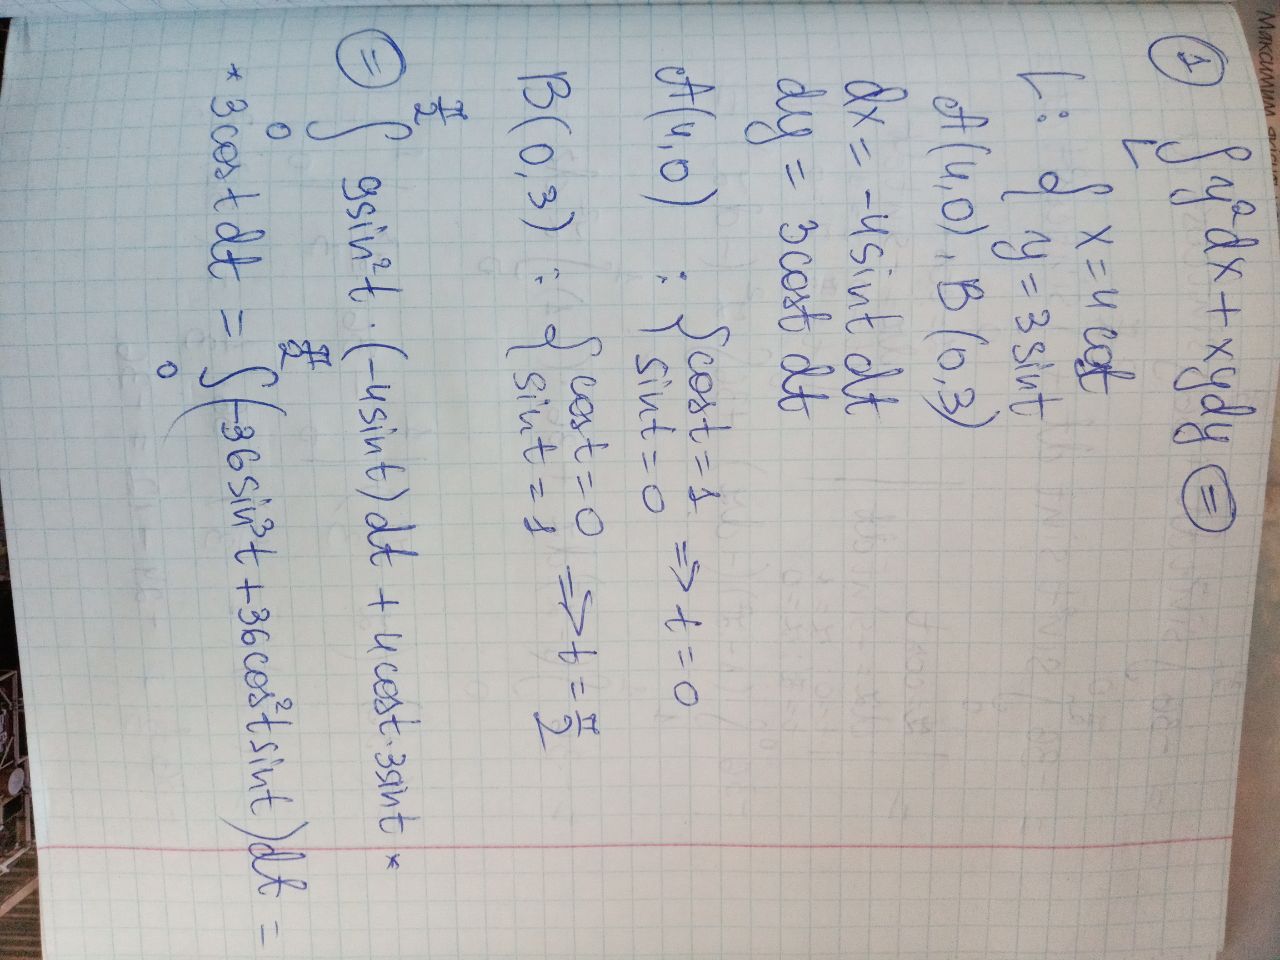 Максимум
① ∫_L y²dx + xydy ⊜
L: { x = 4 cost
y = 3 sint
A(4,0), B(0,3)
dx = -4 sint dt
dy = 3 cost dt
A(4,0) : { cost = 1
sint = 0 ⇒ t = 0
B(0,3) : { cost = 0
sint = 1 ⇒ t = π/2
⊜ ∫_0^{π/2} 9sin²t · (-4sint) dt + 4cost · 3sint *
* 3cost dt = ∫_0^{π/2} (-36 sin³t + 36cos²t sint) dt =